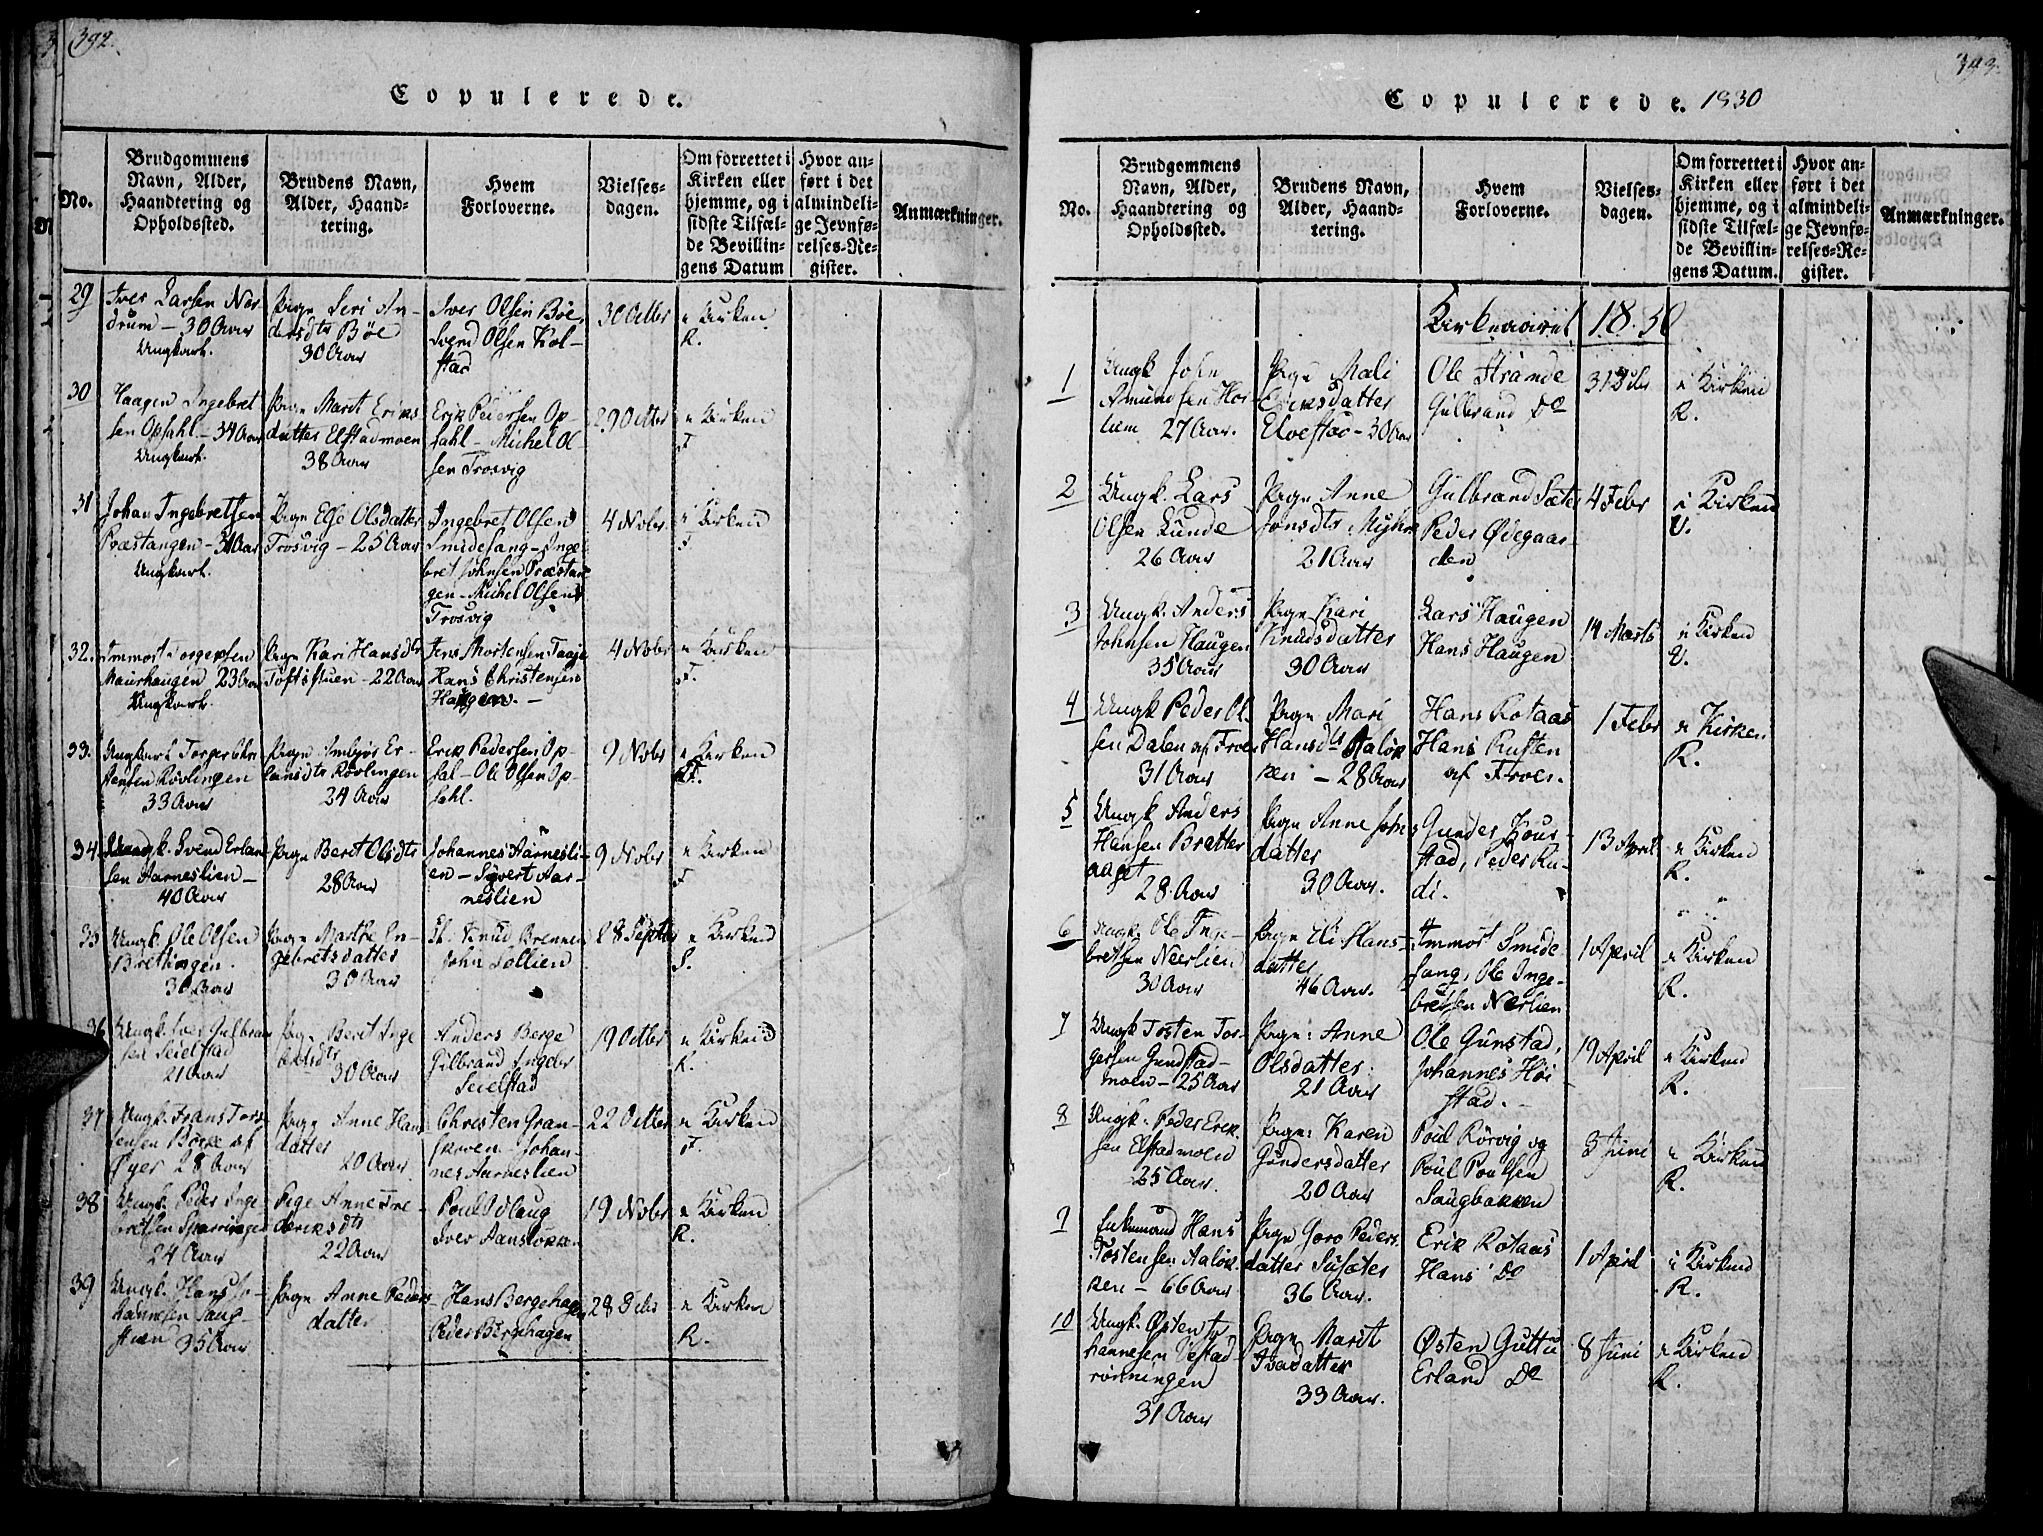 392.
Copulerede.
No.
Brudgommens
Navn, Alder,
Haandtering og
Opholdssted.
Brudens Navn,
Alder, Haand-
tering.
Hvem
Forloverne.
Vielses-
dagen.
Om forrettet i
Kirken eller
hjemme, og i
sidste Tilfæl-
de Bevillin-
gens Datum
Hvor an-
ført i det
almindeli-
ge Jevnfø-
relses-Re-
gister.
Anmærkninger.
29
Iver Larsen Nor-
drum - 30 Aar
Ungkarl.
Pige Seri An-
dersdtr Böe
30 Aar
Iver Olsen Böe,
Svend Olsen Kol-
stad
30 Octbr
i Kirken
R.
30
Haagen Ingebret
sen Opsahl - 34 Aar
Ungkarl.
Pige Marit Eriks
datter Elstadmoen
38 Aar
Erik Pedersen Op-
sahl - Michel Ol-
sen Trosvig
29 Octbr
i Kirken
F
31
Johan Ingebretsen
Præstangen - 31 Aar
Ungkarl.
Pige Else Olsdatter
Trosvig - 25 Aar
Ingebret Olsen
Smidesang - Inge-
bret Johnsen Præstan-
gen - Michel Olsen
Trosvig
4 Nobr
i Kirken
F
32.
Maurhaugen 23 Aar
Ungkarl.
Pige Kari Hansdtr
Toftstuen - 22 Aar
Jens Mortensen Taaje
Hans Christensen
Haugen. -
4 Nobr
i Kirken
F.
33.
Ungkarl Torger Chri
stensen Rövlingen
33 Aar
Pige Imbjör Er-
lansdtr Rövlingen
24 Aar
Erik Pedersen Op-
sal - Ole Olsen Op-
sahl.
9 Nobr
i Kirken
F.
34
Ungk. Svend Erlan
sen Aarneslien -
40 Aar
Pige Beret Olsdtr
28 Aar
Johannes Aarnesli-
en - Sivert Aar-
neslien
9 Nobr
i Kirken
F
35
Ungk. Ole Olsen
Bretlingen.
30 Aar
Pige Marthe In-
gebretsdatter
30 Aar
Knud Brennen
John Lollien
28 Septb
i Kirken
S.
36
Ungk. Iver Gulbran
sen Seielstad
21 Aar
Pige Beret Inge
bretsdtr
30 Aar
Anders Berge
Gulbrand Ingebr
Seielstad
19 Octbr
i Kirken
R.
37
Ungk. Frans Tors-
tensen Börke af
Öyer 28 Aar
Pige Anne Hans
datter
20 Aar
Christen Gran-
skoven - Johan-
nes Aarneslien
22 Octbr
i Kirken
F.
38
Ungk. Peder Inge
bretsen Sparrhagen
24 Aar
Pige Anne Fre-
deriksdtr
22 Aar
Poul Odlaug
Iver Aanslökken
19 Nobr
i Kirken
R.
39
Ungk. Hans Jo-
hannesen Saug-
stuen 35 Aar
Pige Anne Peders
datter
Hans Bergehagen
Peder Bergehagen
28 Dcbr
i Kirken
R.
393.
Copulerede. 1830
No.
Brudgommens
Navn, Alder,
Haandtering og
Opholdssted.
Brudens Navn,
Alder, Haand-
tering.
Hvem
Forloverne.
Vielses-
dagen.
Om forrettet i
Kirken eller
hjemme, og i
sidste Tilfæl-
de Bevillin-
gens Datum.
Hvor an-
ført i det
almindeli-
ge Jevnfø-
relses-Re-
gister.
Anmærkninger.
Kirkeaaret 1830
1
Ungk. John
Amundsen Hov-
liem 27 Aar.
Pige Mali
Eriksdatter
Elvestad - 30 Aar
Ole Strande
Gulbrand Do
31 Dcbr
i Kirken
R.
2
Ungk. Lars
Olsen Lunde
26 Aar
Pige Anne
Jonsdtr Myhre
21 Aar
Gulbrand Sæter
Peder Ødegaar-
den
4 Febr
i Kirken
V.
3
Ungk. Anders
Johnsen Haugen
35 Aar
Pige Kari
Knudsdatter
30 Aar
Lars Haugen
Hans Haugen
14 Marts
i Kirken
V.
4
Ungk Peder Ol-
sen Dalen af Froen
31 Aar
Pige Mari
Hansdtr Aaløk
ken - 28 Aar
Hans Rotaas
Hans Rusten
af Froen.
1 Febr
i Kirken
R.
5
Ungk Anders
Hansen Bretter
aaget
28 Aar
Pige Anne John
datter
30 Aar.
Gunder Kour-
stad, Peder Ru-
di.
13 April
i Kirken
R.
6
Ungk. Ole Inge-
bretsen Neerlien
30 Aar
Pige Eli Hans-
datter
46 Aar.
Immort Smide
sang, Ole Inge-
bretsen Nerlien
1 April
i Kirken
R.
7
Ungk Tosten Tor-
gersen Gunstad-
moen - 25 Aar
Pige: Anne
Olsdatter
21 Aar
Ole Gunstad,
Johannes Höi
stad.
19 April
i Kirken
R.
8
Ungk. Peder Erik
sen Elstadmoen
25 Aar.
Pige: Karen
Gundersdatter
20 Aar
Poul Rörvig og
Poul Poulsen
Saugbakken
3 Juni
i Kirken
R.
9
Enkemand Hans
Tostensen Aaløk-
ken - 66 Aar
Pige Goro Peders
datter Susæter
36 Aar.
Erik Rotaas
Hans Do
1 April
i Kirken
R.
10
Ungk. Østen Jo
hannesen Vestad-
rönningen
31 Aar
Pige Marit
Ivarsdatter
33 Aar.
Østen Guttu
Erland Do
8 Juni
i Kirken
R.